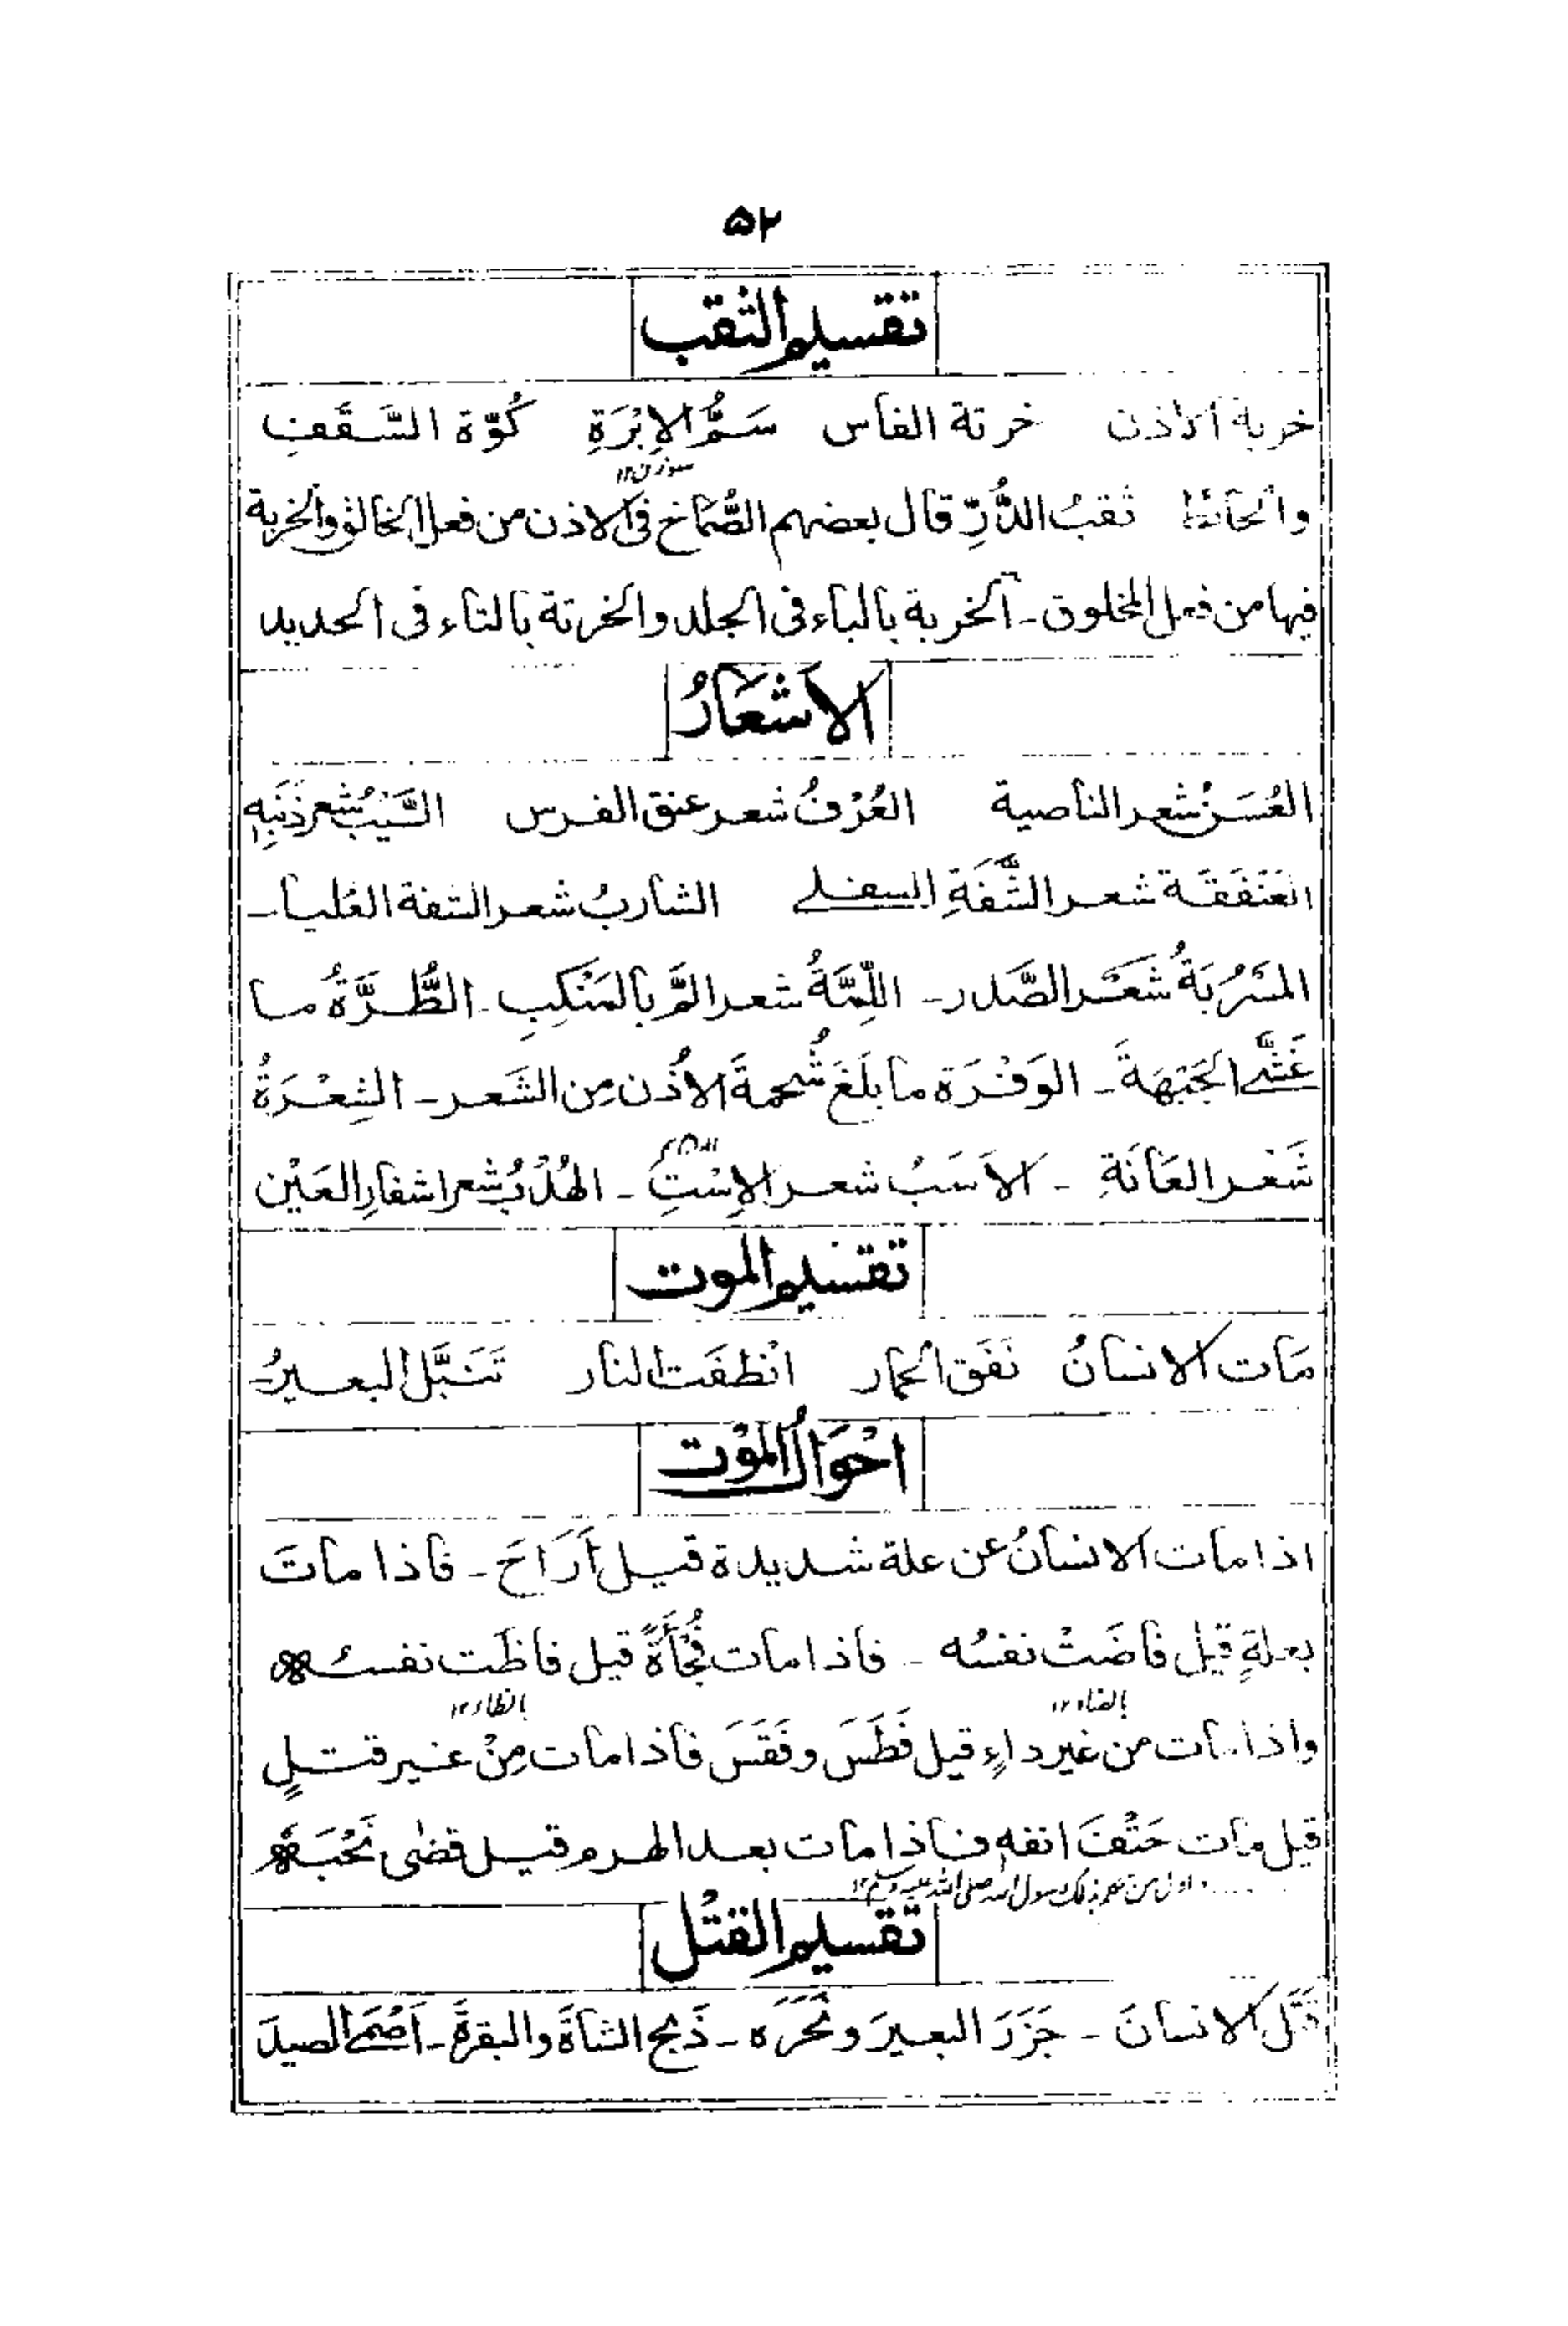 ۵۲
تقسيم الثقب
خربة الاذن خرتة الفاس سَمُّ الاِبْرَةِ كُوّة السَّقَفِ
سوزن ١٢
والحائط ثقبُ الدُّرِّ قال بعضهم الصُّمَاخ فى الاذن من فعل الخالق والخربة
فيها من فعل المخلوق ـ الخربة بالباء فى الجلد والخرتة بالتاء فى الحديد
الاَشْعَارُ
العُسَنُ شعر الناصية العُرْفُ شعر عنق الفرس السَّيْبُ شعر ذَنَبِهٖ
العَنَفَقَة شعر الشَّفَةِ السفلے الشاربُ شعر الشفة العُليا ـ
المَسْرُبَةُ شَعَر الصَّدر ـ اللِّمَّةُ شعر المَّ بالمَنْكِبِ ـ الطُّرَّةُ ما
غَشّٰے الجَبَهَةَ ـ الوَفْرَة ما بلَغَ شُحمةَ الاُذُن مِن الشَعر ـ الشِعْرَةُ
شَعْر العَانَةِ ـ الاَسَبُ شعر الاِسْتِ ـ الهُدْبُ شعر اشفارِ العَيْن
تقسيم الموت
مَات الانسانُ نَفَق الحمار انْطفَت النار تَنَبَّل البعيرُ ـ
احْوَالُ المَوْت
اذا مات الانسانُ عن علة شديدة قيل أَرَاحَ ـ فاذا ماتَ
بعلةٍ قيل فاضَتْ نفسُه ـ فاذا مات فُجْأَةً قيل فاظَت نفسه
بالضاد ١٢ بالظاء ١٢
واذا مات من غير داءٍ قيل فَطَسَ وفَقَسَ فاذا مات مِنْ غير قتلٍ
قيل مات حَتْفَ انفهٖ فاذا مات بعد الهرم قيل قضٰى نَحْبَهٗ
اول من تكلم بذلك رسول الله صلى الله عليه وسلم ١٢
تقسيم القتْل
قَتَل الانسانَ ـ جَزَرَ البعيرَ ونَحَرَه ـ ذَبح الشاةَ والبقرةَ ـ اَصْمَےٰ الصيدَ